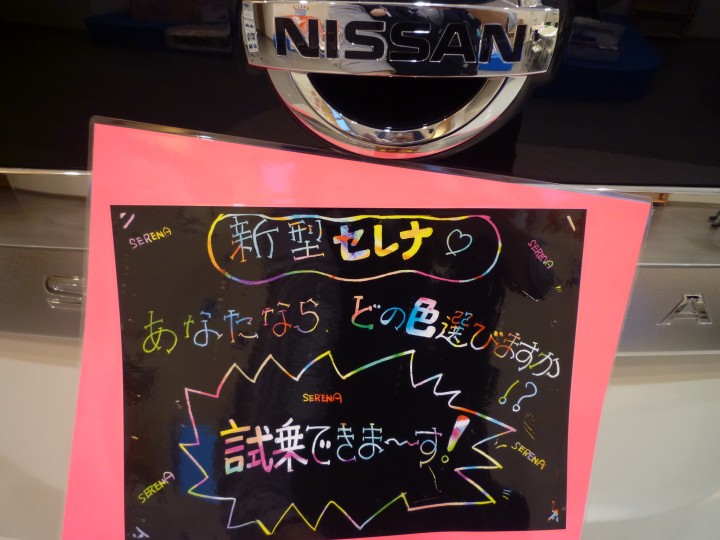 NISSAN
新型セレナ♡
SERENA
SERENA
あなたなら、どの色選びますか
!?
SERENA
試乗できま〜す!
SERENA
SERENA
S A